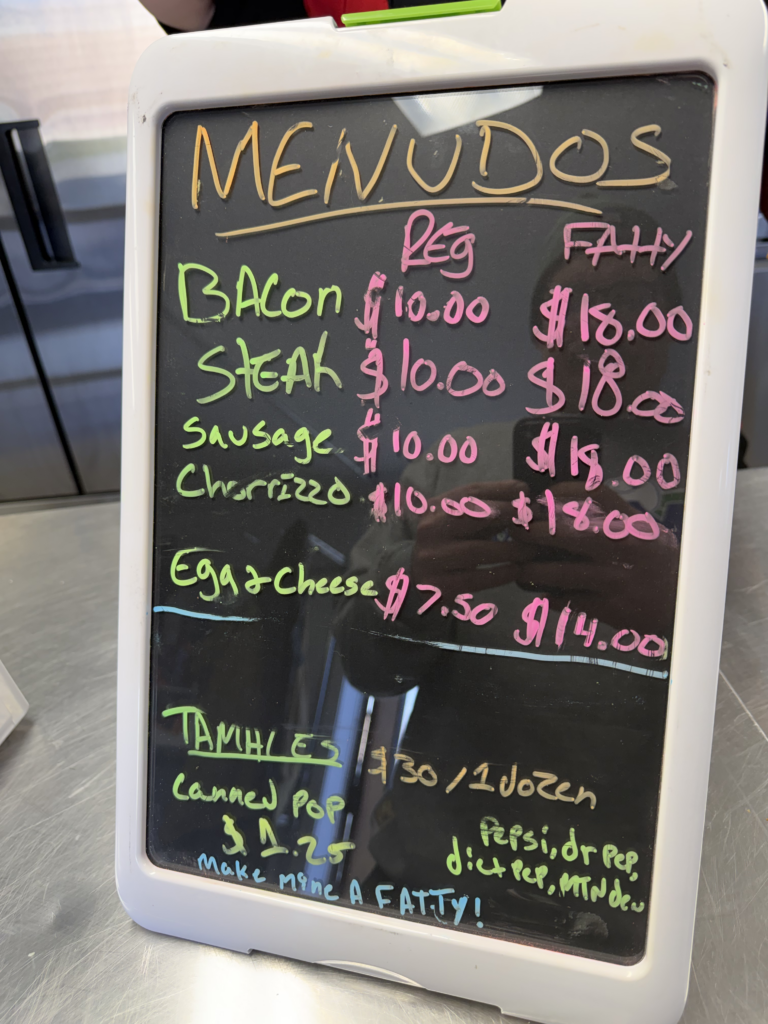 MENUDOS
REG FATTY
BACON $10.00 $18.00
STEAK $10.00 $18.00
Sausage $10.00 $18.00
Chorrizzo $10.00 $18.00
Egg & Cheese $7.50 $14.00
TAMALES $30 / 1 dozen
canned pop
$1.25
Pepsi, dr pep,
diet pep, MTN dew
Make mine A FATTY!